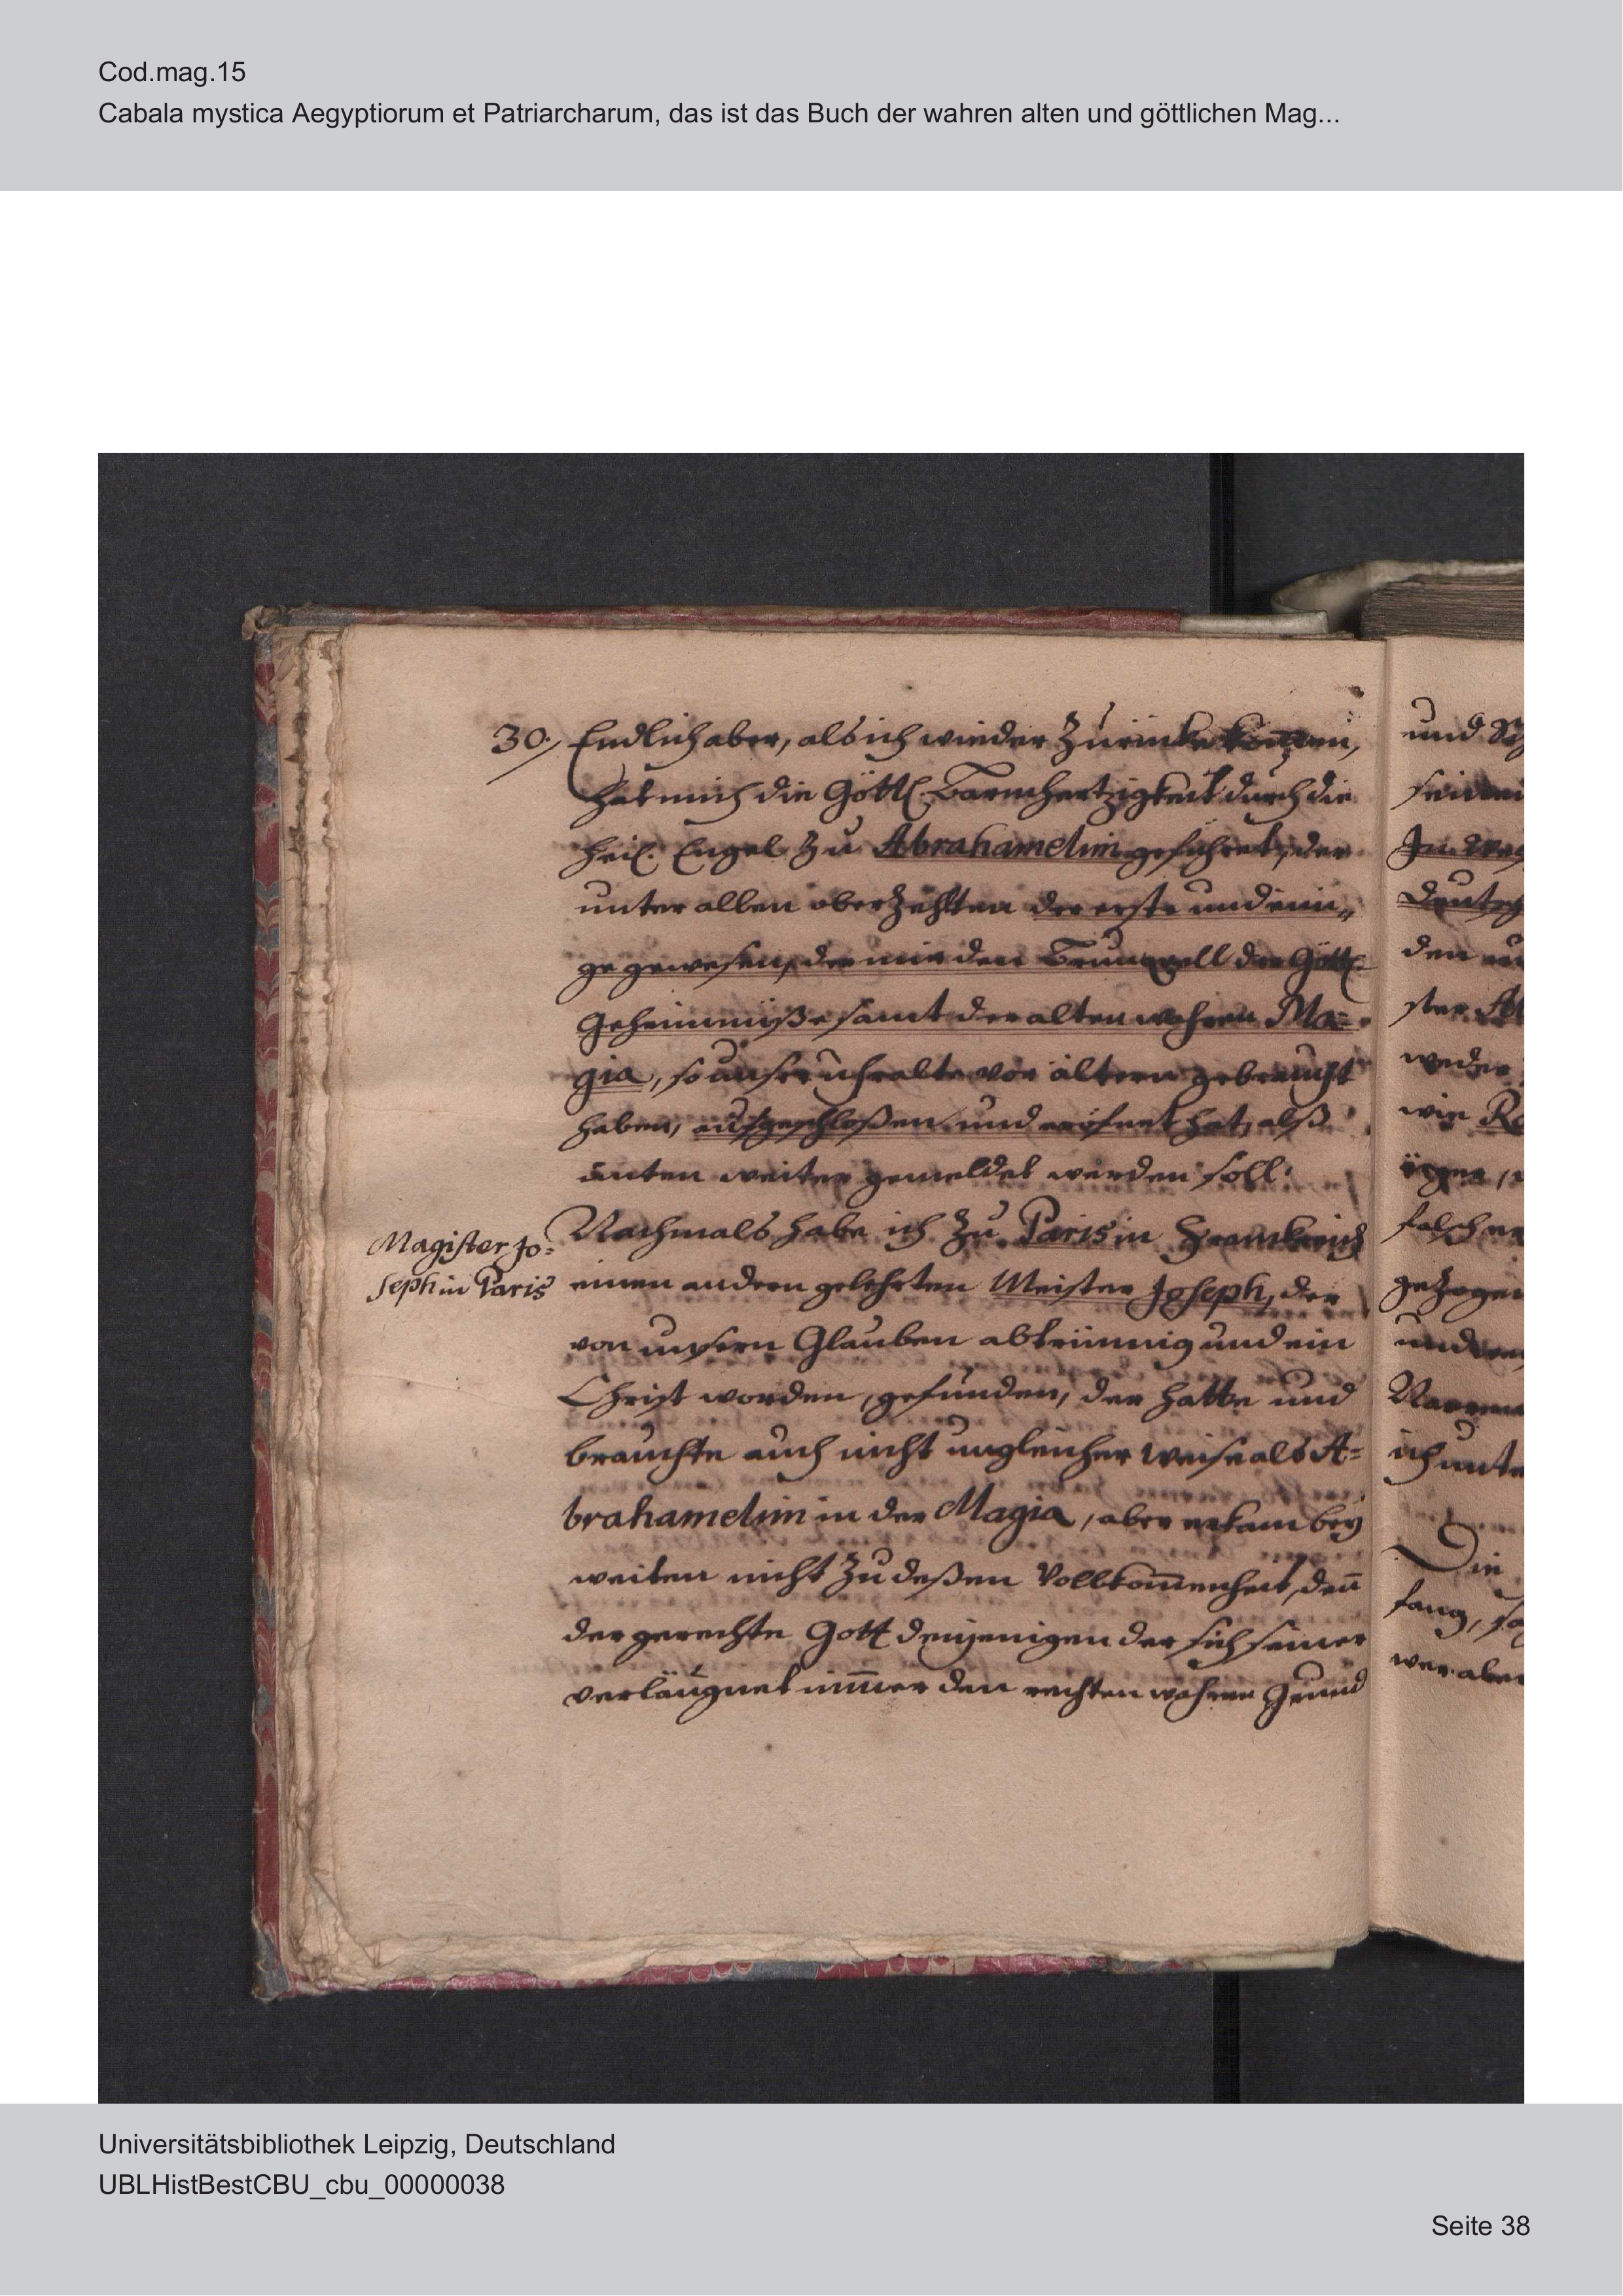 Cod.mag.15
Cabala mystica Aegyptiorum et Patriarcharum, das ist das Buch der wahren alten und göttlichen Mag...
30. Endlich aber, als ich wieder zurücke kom̅en,
hat mich die Göttl. Barmhertzigkeit durch die
heil. Engel zu Abrahamelim geführet, der
unter allen oberzehlten der erste und eini„
ge gewesen, der mir den Brunquell der Göttl.
Geheimnüße samt der alten wahren Ma=
gia, so unsere uhralte vor ältern gebraucht
haben, aufgeschloßen und eröfnet hat, alß
unten weiter gemeldet werden soll.
Magister Jo=
seph in Paris
Nachmals habe ich zu Paris in Franckreich
einen andern gelehrten Meister Joseph, der
von unsern Glauben abtrünnig und ein
Christ worden, gefunden, der hatte und
brauchte auch nicht ungleicher weise als A=
brahamelim in der Magia, aber er kam bey
weiten nicht zu deßen Vollkom̅enheit, den̅
der gerechte Gott denjenigen der sich seiner
verläugnet im̅er den rechten wahren Grund
und
seinen
den
ster
weder
wie
falscher
gezogen
und
ich unte
Die
fang, so
wer aber
Universitätsbibliothek Leipzig, Deutschland
UBLHistBestCBU_cbu_00000038
Seite 38